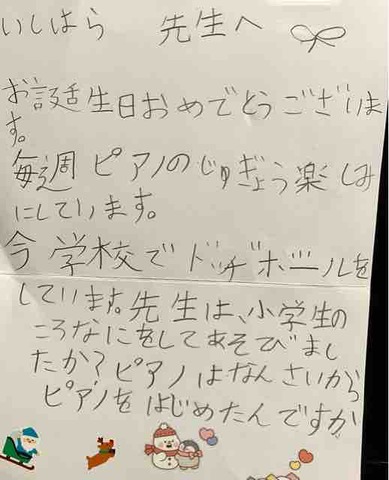 いしはら 先生へ
お誕生日おめでとうございま
す。
毎週ピアノのじゅぎょう楽しみ
にしています。
今学校でドッヂボールを
しています。先生は、小学生の
ころなにをしてあそびまし
たか?ピアノはなんさいから
ピアノをはじめたんですか